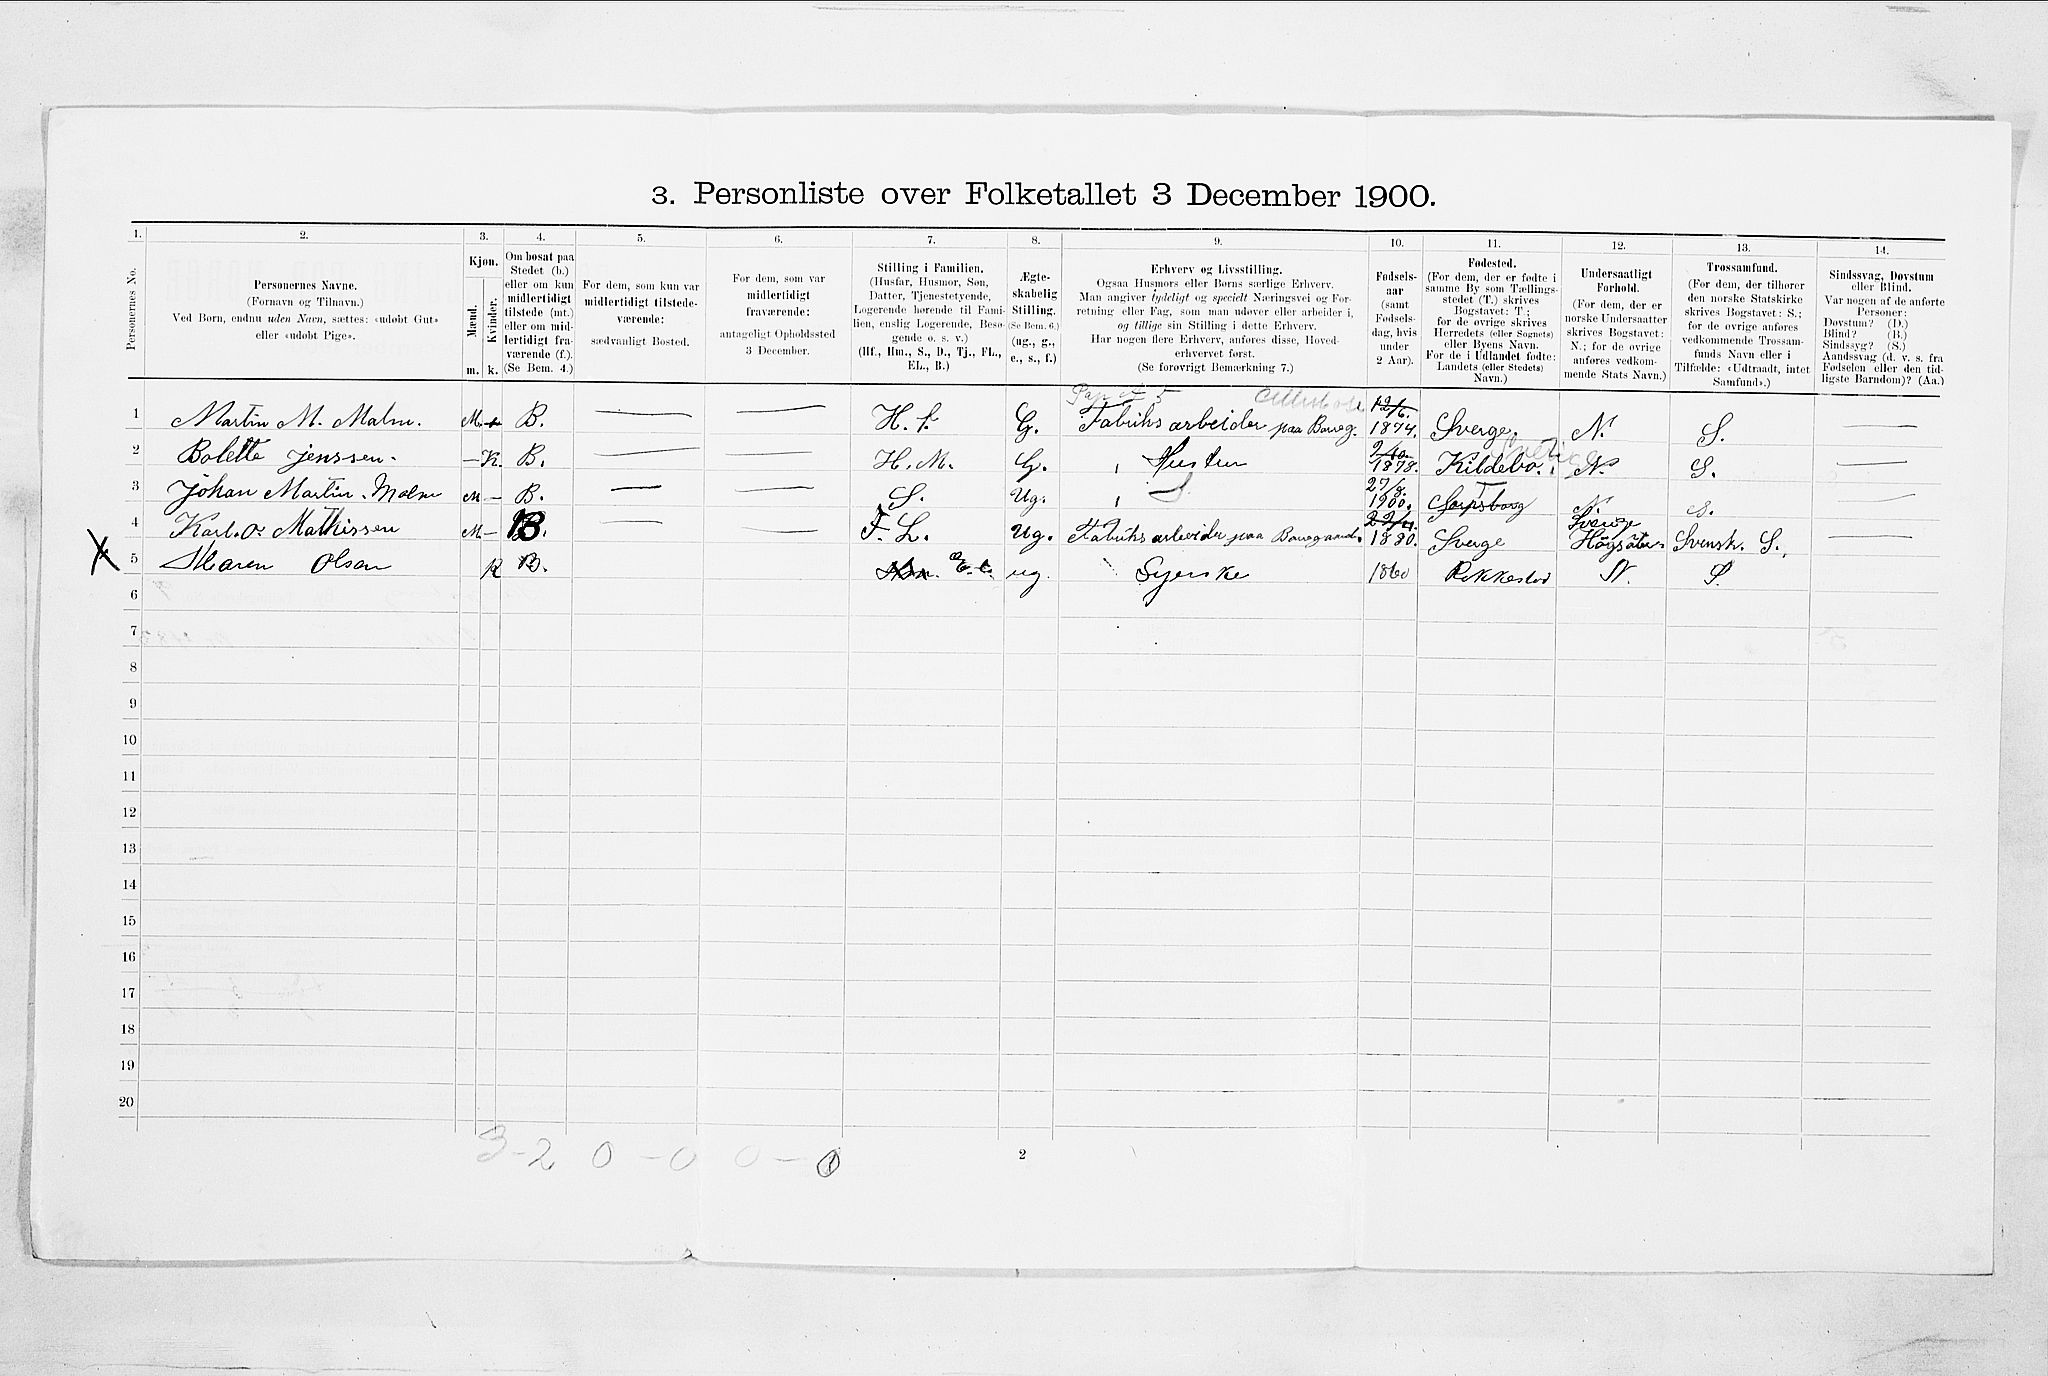 3. Personliste over Folketallet 3 December 1900.
1. 2. 3. 4. 5. 6. 7. 8. 9. 10. 11. 12. 13. 14.
Personernes No.
Personernes Navne.
(Fornavn og Tilnavn.)
Ved Børn, endnu uden Navn, sættes: «udøbt Gut»
eller «udøbt Pige».
Kjøn.
Mænd.
Kvinder.
m. k.
Om bosat paa
Stedet (b.)
eller om kun
midlertidigt
tilstede (mt.)
eller om mid-
lertidigt fra-
værende (f.).
(Se Bem. 4.)
For dem, som kun var
midlertidigt tilstede-
værende:
sædvanligt Bosted.
For dem, som var
midlertidigt
fraværende:
antageligt Opholdssted
3 December.
Stilling i Familien.
(Husfar, Husmor, Søn,
Datter, Tjenestetyende,
Logerende hørende til Fami-
lien, enslig Logerende, Besø-
gende o. s. v.)
(Hf., Hm., S., D., Tj., FL.,
EL., B.)
Ægte-
skabelig
Stilling.
(Se Bem. 6.)
(ug., g.,
e., s., f.)
Erhverv og Livsstilling.
Ogsaa Husmors eller Børns særlige Erhverv.
Man angiver tydeligt og specielt Næringsvei og For-
retning eller Fag, som man udøver eller arbeider i,
og tillige sin Stilling i dette Erhverv.
Har nogen flere Erhverv, anføres disse, Hoved-
erhvervet først.
(Se forøvrigt Bemærkning 7.)
Fødsels-
aar
(samt
Fødsels-
dag, hvis
under
2 Aar).
Fødested.
(For dem, der er fødte i
samme By som Tællings-
stedet (T.) skrives
Bogstavet: T.;
for de øvrige skrives
Herredets (eller Sognets)
eller Byens Navn.
For de i Udlandet fødte:
Landets (eller Stedets)
Navn.)
Undersaatligt
Forhold.
(For dem, der er
norske Undersaatter
skrives Bogstavet:
N.; for de øvrige
anføres vedkom-
mende Stats Navn.)
Trossamfund.
(For dem, der tilhører
den norske Statskirke
skrives Bogstavet: S.;
for de øvrige anføres
vedkommende Trossam-
funds Navn eller i
Tilfælde: «Udtraadt, intet
Samfund».)
Sindssvag, Døvstum
eller Blind.
Var nogen af de anførte
Personer:
Døvstum? (D.)
Blind? (B.)
Sindssyg? (S.)
Aandssvag (d. v. s. fra
Fødselen eller den tid-
ligste Barndom)? (Aa.)
1 Martin M. Malm. M. B. — — H. f. G. Fabriks arbeider paa Boreg. 12/6. 1874. Sverge. N. S. —
2 Bolette Jenssen. — K. B. — — H. M. G. Hustru 1878. Kildebo. N. S. —
3 Johan Martin. Malm M — B. — — S. Ug. S. 27/8. 1900. Sarpsborg T N. S. —
4 Karl. O. Mathissen M — B. — — F. L. Ug. Fabriks arbeider paa Boregaard. 1880. Sverge Sverige Högsäter. Svensk. S. —
X 5 Maren Olsen K B. E. L. ug. Syerske 1860 Rakkestad N. S.
6
7
8
9
10
11
12
13
14
15
16
17
18
19
20
3 - 2 0 - 0 0 - 0
2